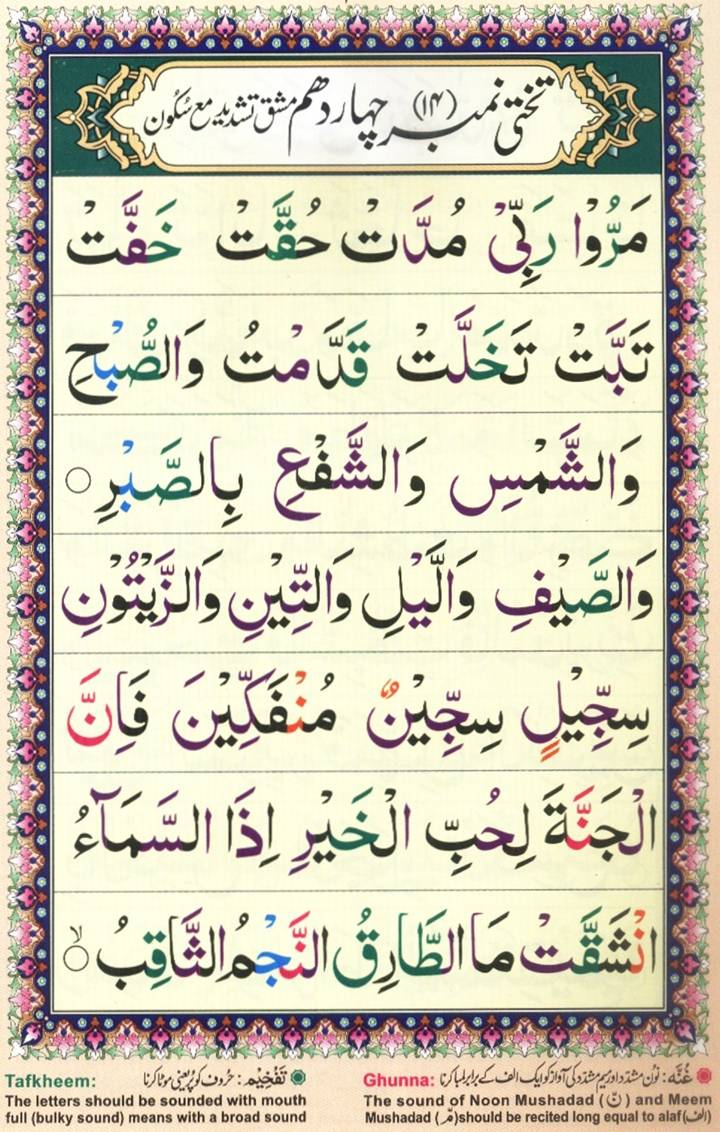 تختی نمبر (۱۴) چہار دھم مشق تشدید مع سکون
مَرُّوْا رَبِّیْ مُدَّتْ حُقَّتْ خَفَّتْ
تَبَّتْ تَخَلَّتْ قَدَّمْتُ وَالصُّبْحِ
وَالشَّمْسِ وَالشَّفْعِ بِالصَّبْرِ ○
وَالصَّیْفِ وَالَّیْلِ وَالتِّیْنِ وَالزَّیْتُوْنِ
سِجِّیْلٍ سِجِّیْنٌ مُنْفَکِّیْنَ فَاِنَّ
الْجَنَّةَ لِحُبِّ الْخَیْرِ اِذَا السَّمَآءُ
انْشَقَّتْ مَا الطَّارِقُ النَّجْمُ الثَّاقِبُ ○ۙ
غُنَّہ: نون مشدد اور میم مشدد کی آواز کو ایک الف کے برابر لمبا کرنا
Ghunna:
The sound of Noon Mushadad (نّ) and Meem
Mushadad (مّ) should be recited long equal to alaf (الف)
تَفْخِیْم: حروف کو پُر یعنی موٹا کرنا
Tafkheem:
The letters should be sounded with mouth
full (bulky sound) means with a broad sound